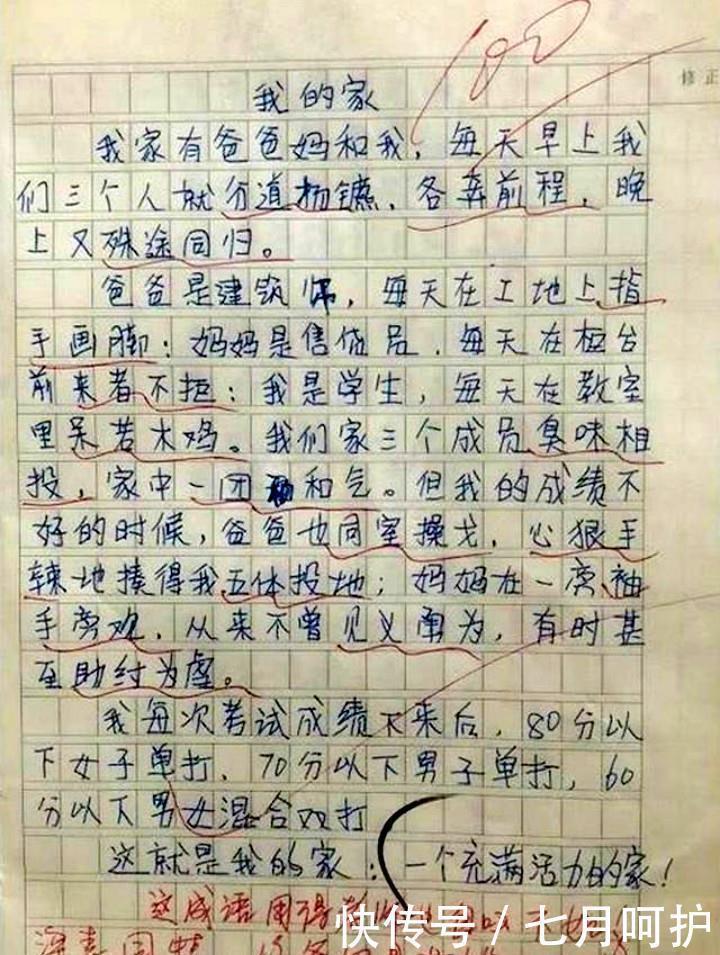 100
修正
我的家
我家有爸爸妈和我，每天早上我
们三个人就分道扬镳，各奔前程，晚
上又殊途同归。
爸爸是建筑师，每天在工地上指
手画脚；妈妈是售货员，每天在柜台
前来者不拒；我是学生，每天在教室
里呆若木鸡。我们家三个成员臭味相
投，家中一团和气。但我的成绩不
好的时候，爸爸也同室操戈，心狠手
辣地揍得我五体投地；妈妈在一旁袖
手旁观，从来不曾见义勇为，有时甚
至助纣为虐。
我每次考试成绩下来后，80分以
下女子单打，70分以下男子单打，60
分以下男女混合双打
这就是我的家：一个充满活力的家！
这成语用得
快传号/七月呵护